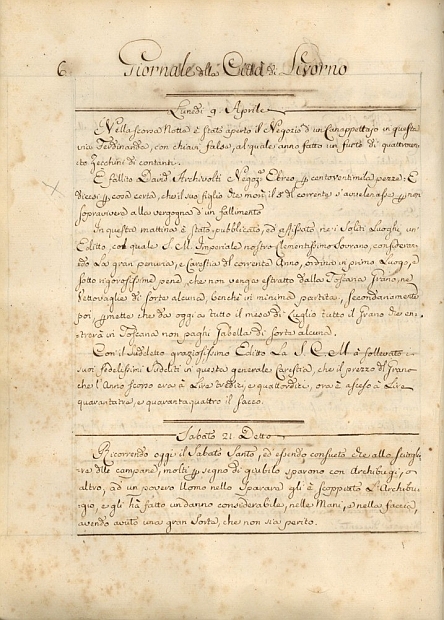 6
Giornale della Città di Livorno
Lunedì 9. Aprile
Nella scorsa Notte è stato aperto il Negozio d'un Canappettajo in questa
via Ferdinanda, con chiavi false, al quale anno fatto un furto di quattrocento
Zecchini di contanti.
È fallito David Archivolti Negoz. Ebreo p centoventimila pezze: E
dicesi p cosa certa, che il suo figlio che morì il dì del corrente s'avvelenasse p non
sopravivere alla vergogna d'un fallimento
In questa mattina è stato pubblicato, ed affissato nei Soliti Luoghi un
Editto, col quale S. M. Imperiale nostro Clementissimo Sovrano, considerando
La gran penuria, e Carestia del corrente Anno, ordina in primo Luogo, e
sotto rigorosissime pene, che non venga estratto dalla Toscana Grano, ne
Vettovaglie di sorte alcuna, benchè in minima partita, secondariamente
poi pmette che da oggi a tutto il mese di Luglio tutto il Grano che en-
trerà in Toscana non paghi Gabella di sorte alcuna.
Con il suddetto graziosissimo Editto La S. C. M. à sollevato i
suoi fedelissimi Sudditi in questa generale Carestia, che il prezzo del Grano
che l'Anno scorso era a Lire tredici, e quattordici, ora è asceso a Lire
quarantatre, e quarantaquattro il sacco.
Sabato 21. Detto
Ricorrendo oggi il Sabato Santo, ed essendo consueto che alla scioglie-
re delle campane, molti p segno di giubilo sparano con Archibugi, o
altro, ad un povero Uomo nello Sparare gli è scoppiato L'Archibu-
gio, e gli hà fatto un danno considerabile, nelle Mani, e nella faccia,
avendo avuto una gran Sorte, che non sia perito.